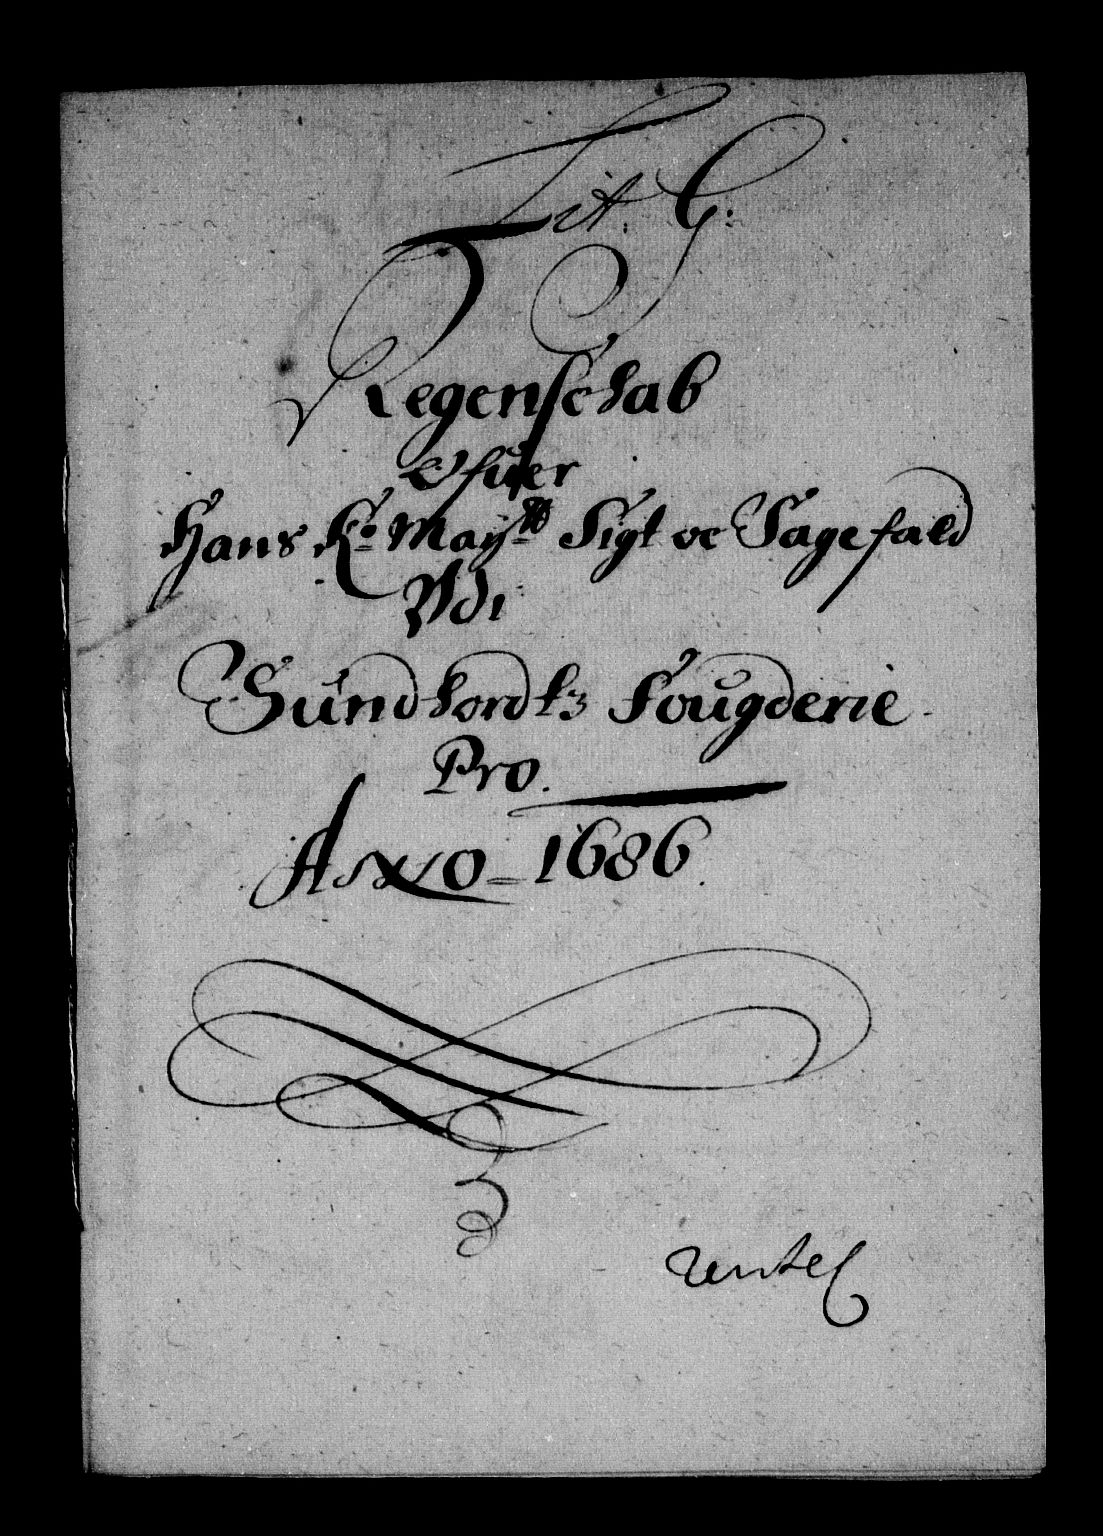 Lit. G:
Regenschab
Ofuer
Hans Ko: Maytz Sigt oc Sagefald
Vdi
Sundhordlz Fougderie
Pro.
Anno 1686.